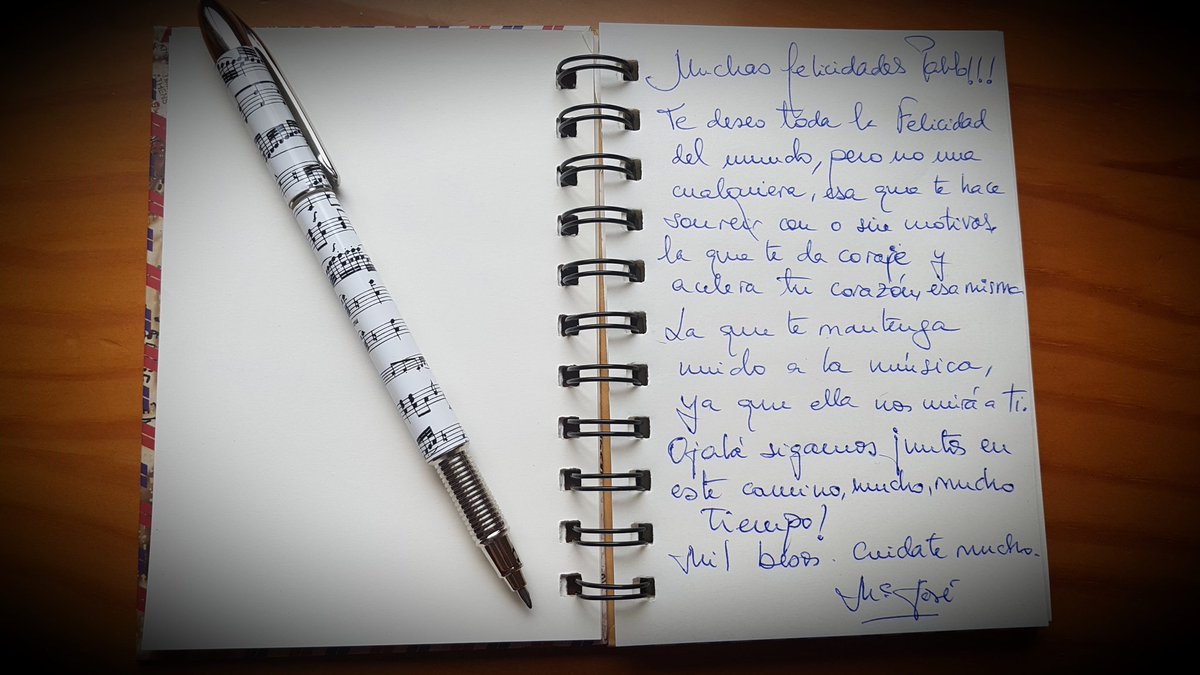 Muchas felicidades Pablo!!!
Te deseo toda la Felicidad
del mundo, pero no una
cualquiera, esa que te hace
sonreir con o sin motivos,
la que te da coraje y
acelera tu corazón, esa misma
La que te mantenga
unido a la música,
ya que ella nos unirá a ti.
Ojalá sigamos juntos en
este camino, mucho, mucho
Tiempo!
Mil besos. Cuidate mucho.
Mª José